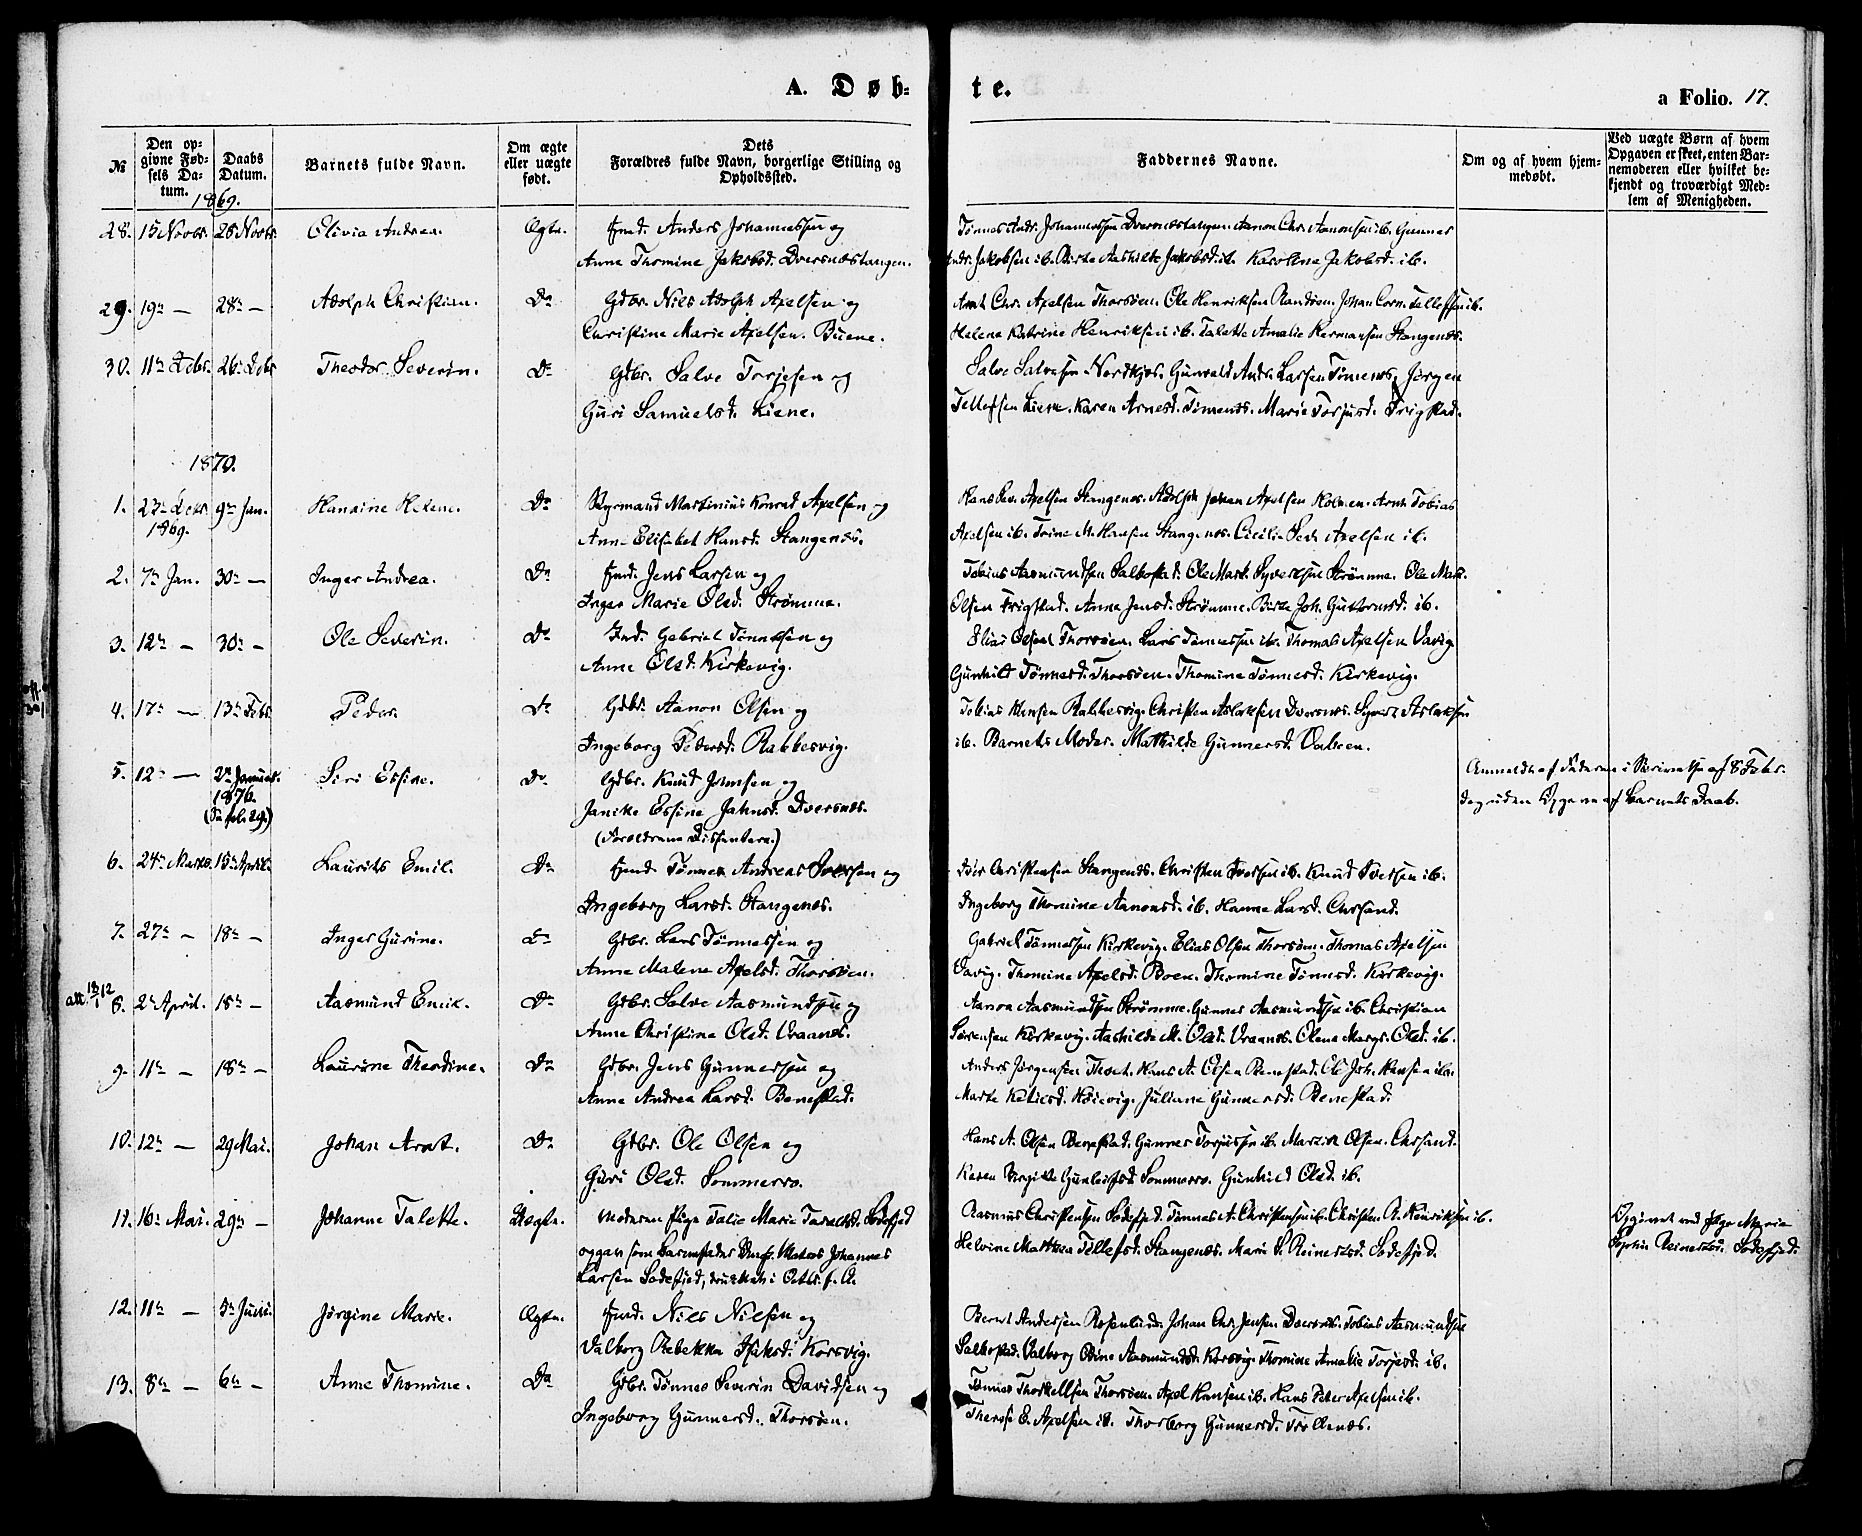 A. Døb-
te.
a Folio. 17.
№
Den op-
givne Fød-
sels Da-
tum.
Daabs
Datum.
Barnets fulde Navn.
Om ægte
eller uægte
født.
Dets
Forældres fulde Navn, borgerlige Stilling og
Opholdssted.
Faddernes Navne.
Om og af hvem hjem-
medøbt.
Ved uægte Børn af hvem
Opgaven er skeet, enten Bar-
nemoderen eller hvilket be-
kjendt og troværdigt Med-
lem af Menigheden.
1869.
28. 15 Novbr. 28 Novbr. Olivia Andrea. Ægte. Anders Johannessen og
Anna Thomine Jakobsd. Dversnæstangen.
Tønnes Andr. Johannessen Dversnæstangen. Aanon Chr. Aanonsen ib. Gunner
Andr. Jakobsen ib. Birte Aashilde Jakobsd. ib. Karoline Jakobsd. ib.
29. 19de — 28de — Adolph Christian. Do Gdbr. Nils Adolph Axelsen og
Christine Marie Axelsen. Buene.
Arnt Chr. Axelsen Thorsøen. Ole Henriksen Randøen. Johan Corn. Tellefsen ib.
Helene Katrine Henriksen ib. Talette Amalie Hermansen Stangenes.
30. 11te Decbr. 26de Decbr Theodor Severin. Do Gdbr. Salve Torjesen og
Guri Samuelsd. Liene.
Salve Salvesen Nordkjos. Gunvald Andr. Larsen Timenes. Jørgen
Tellefsen Liene. Karen Arnesd. Timenes. Marie Torjusd. Frigstad.
1870.
1. 23de Decbr. 9de Jan. Hansine Helene. Do Styrmand Martinius Konrad Axelsen og
1869.
Ann Elisabet Hansd. Stangenes.
Hans Sev. Axelsen Stangenes. Adolph Johan Axelsen Holmen. Arnt Tobias
Axelsen ib. Trine M. Hansen Stangenes. Cecilie Axelsen ib.
2. 7de Jan. 30te — Inger Andrea. Do Jens Larsen og
Inger Marie Olsd. Strømme.
Tobias Aasmundsen Salbostad. Ole Mart. Syvertsen Strømme. Ole Mart.
Olsen Frigstad. Anna Jensd. Strømme. Birte Joh. Guttormsd. ib.
3. 12te — 30te — Ole Severin. Do Ind. Gabriel Tønnesen og
Anne Olsd. Kirkevig.
Elias Olsen Thorsøen. Lars Tønnessen ib. Thomas Axelsen Vavig.
Gunhild Tønnesd. Thorsøen. Thomine Tønnesd. Kirkevig.
4. 17de — 13de Febr. Peder. Do Gdbr. Aanon Olsen og
Ingeborg Pedersd. Rabbesvig.
Tobias Hansen Rabbesvig. Christen Aslaksen Dversnes. Syvert Aslaksen
ib. Barnets Moder. Mathilde Gunnersd. Vabeen.
5. 12te — 2den Januar. Siri Essine. Do Gdbr. Knud Johnsen og
1876.
(Se fol. 29.)
Janike Essine Jahnsd. Dversnes.
(Forældrene Dissentere.)
Anmeldt af Faderen i Skrivelse af 8 Febr.
dog uden Opgave af Barnets Daab.
6. 24de Marts. 15de April. Laurits Emil. Do Tønnes Andreas Iversen og
Ingeborg Larsd. Stangenes.
Iver Christensen Stangenes. Christen Iversen ib. Knud Iversen ib.
Ingeborg Thomine Aanonsd. ib. Hanne Larsd. Chrsand.
7. 27de — 18de — Inger Gurine. Do Gdbr. Lars Tønnessen og
Anne Malene Axelsd. Thorsøen.
Gabriel Tønnessen Kirkevig. Elias Olsen Thorsøen. Thomas Axelsen
Vavig. Thomine Axelsd. Boen. Thomine Tønnesd. Kirkevig.
att. 13/1 12
8. 2de April. 18de — Aasmund Emil. Do Gdbr. Salve Aasmundsen og
Anne Christine Olsd. Vraanes.
Aanon Aasmundsen Strømme. Gunner Aasmundsen ib. Christian
Sørensen Kirkevig. Aashilde M. Olsd. Vraanes. Olene Marg. Olsd. ib.
9. 11te — 18de — Laurine Theodine. Do Gdbr. Jens Gunnersen og
Anne Andrea Larsd. Benestad.
Anders Jørgensen Hans A. Olsen Benestad. Ole Joh. Hansen ib.
Marte Høievig. Juliane Gunnersd. Benestad.
10. 12te — 29 Mai. Johan Arnt. Do Gdbr. Ole Olsen og
Guri Olsd. Sommerro.
Hans A. Olsen Benestad. Gunner Torjussen ib. Martin Olsen. Chrsand.
Karen Birgitte Gunleifsd. Sommerro. Gunhild Olsd. ib.
11. 16de Mai. 29de — Johanne Talette. Uægte. Moderen Pige Talie Marie Sodefjed
opgav som Barnefader Matros Johannes
Larsen Sodefjed, druknet i Octbr. f. A.
Rasmus Christensen Sodefjed. Tønnes A. Christensen ib. Christen A. Henriksen ib.
Helvine Mathea Tellefsd. Stangenæs. Marie S. Reinertsd. Sodefjed.
Opgivet ved Pige Marie
Sophie Reinertsd. Sodefjed.
12. 11te — 5te Juni. Jørgine Marie. Ægte. Nils Nilsen og
Valborg Rebekka Korsvig.
Bernt Andersen Rosenlund. Johan Chr. Jensen Dversnes. Tobias Aasmundsen
Salbostad. Valborg Aasmundsd. Korsvig. Thomine Amalie Torjesd. ib.
13. 8de — 6te — Anne Thomine. Do Gdbr. Tønnes Severin Davidsen og
Ingeborg Gunnersd. Thorsøen.
Tønnes Thorkellsen Thorsøen. Axel Hansen ib. Hans Peter Axelsen ib.
Therese E. Axelsen ib. Thorborg Gunnersd. Trøllenæs.